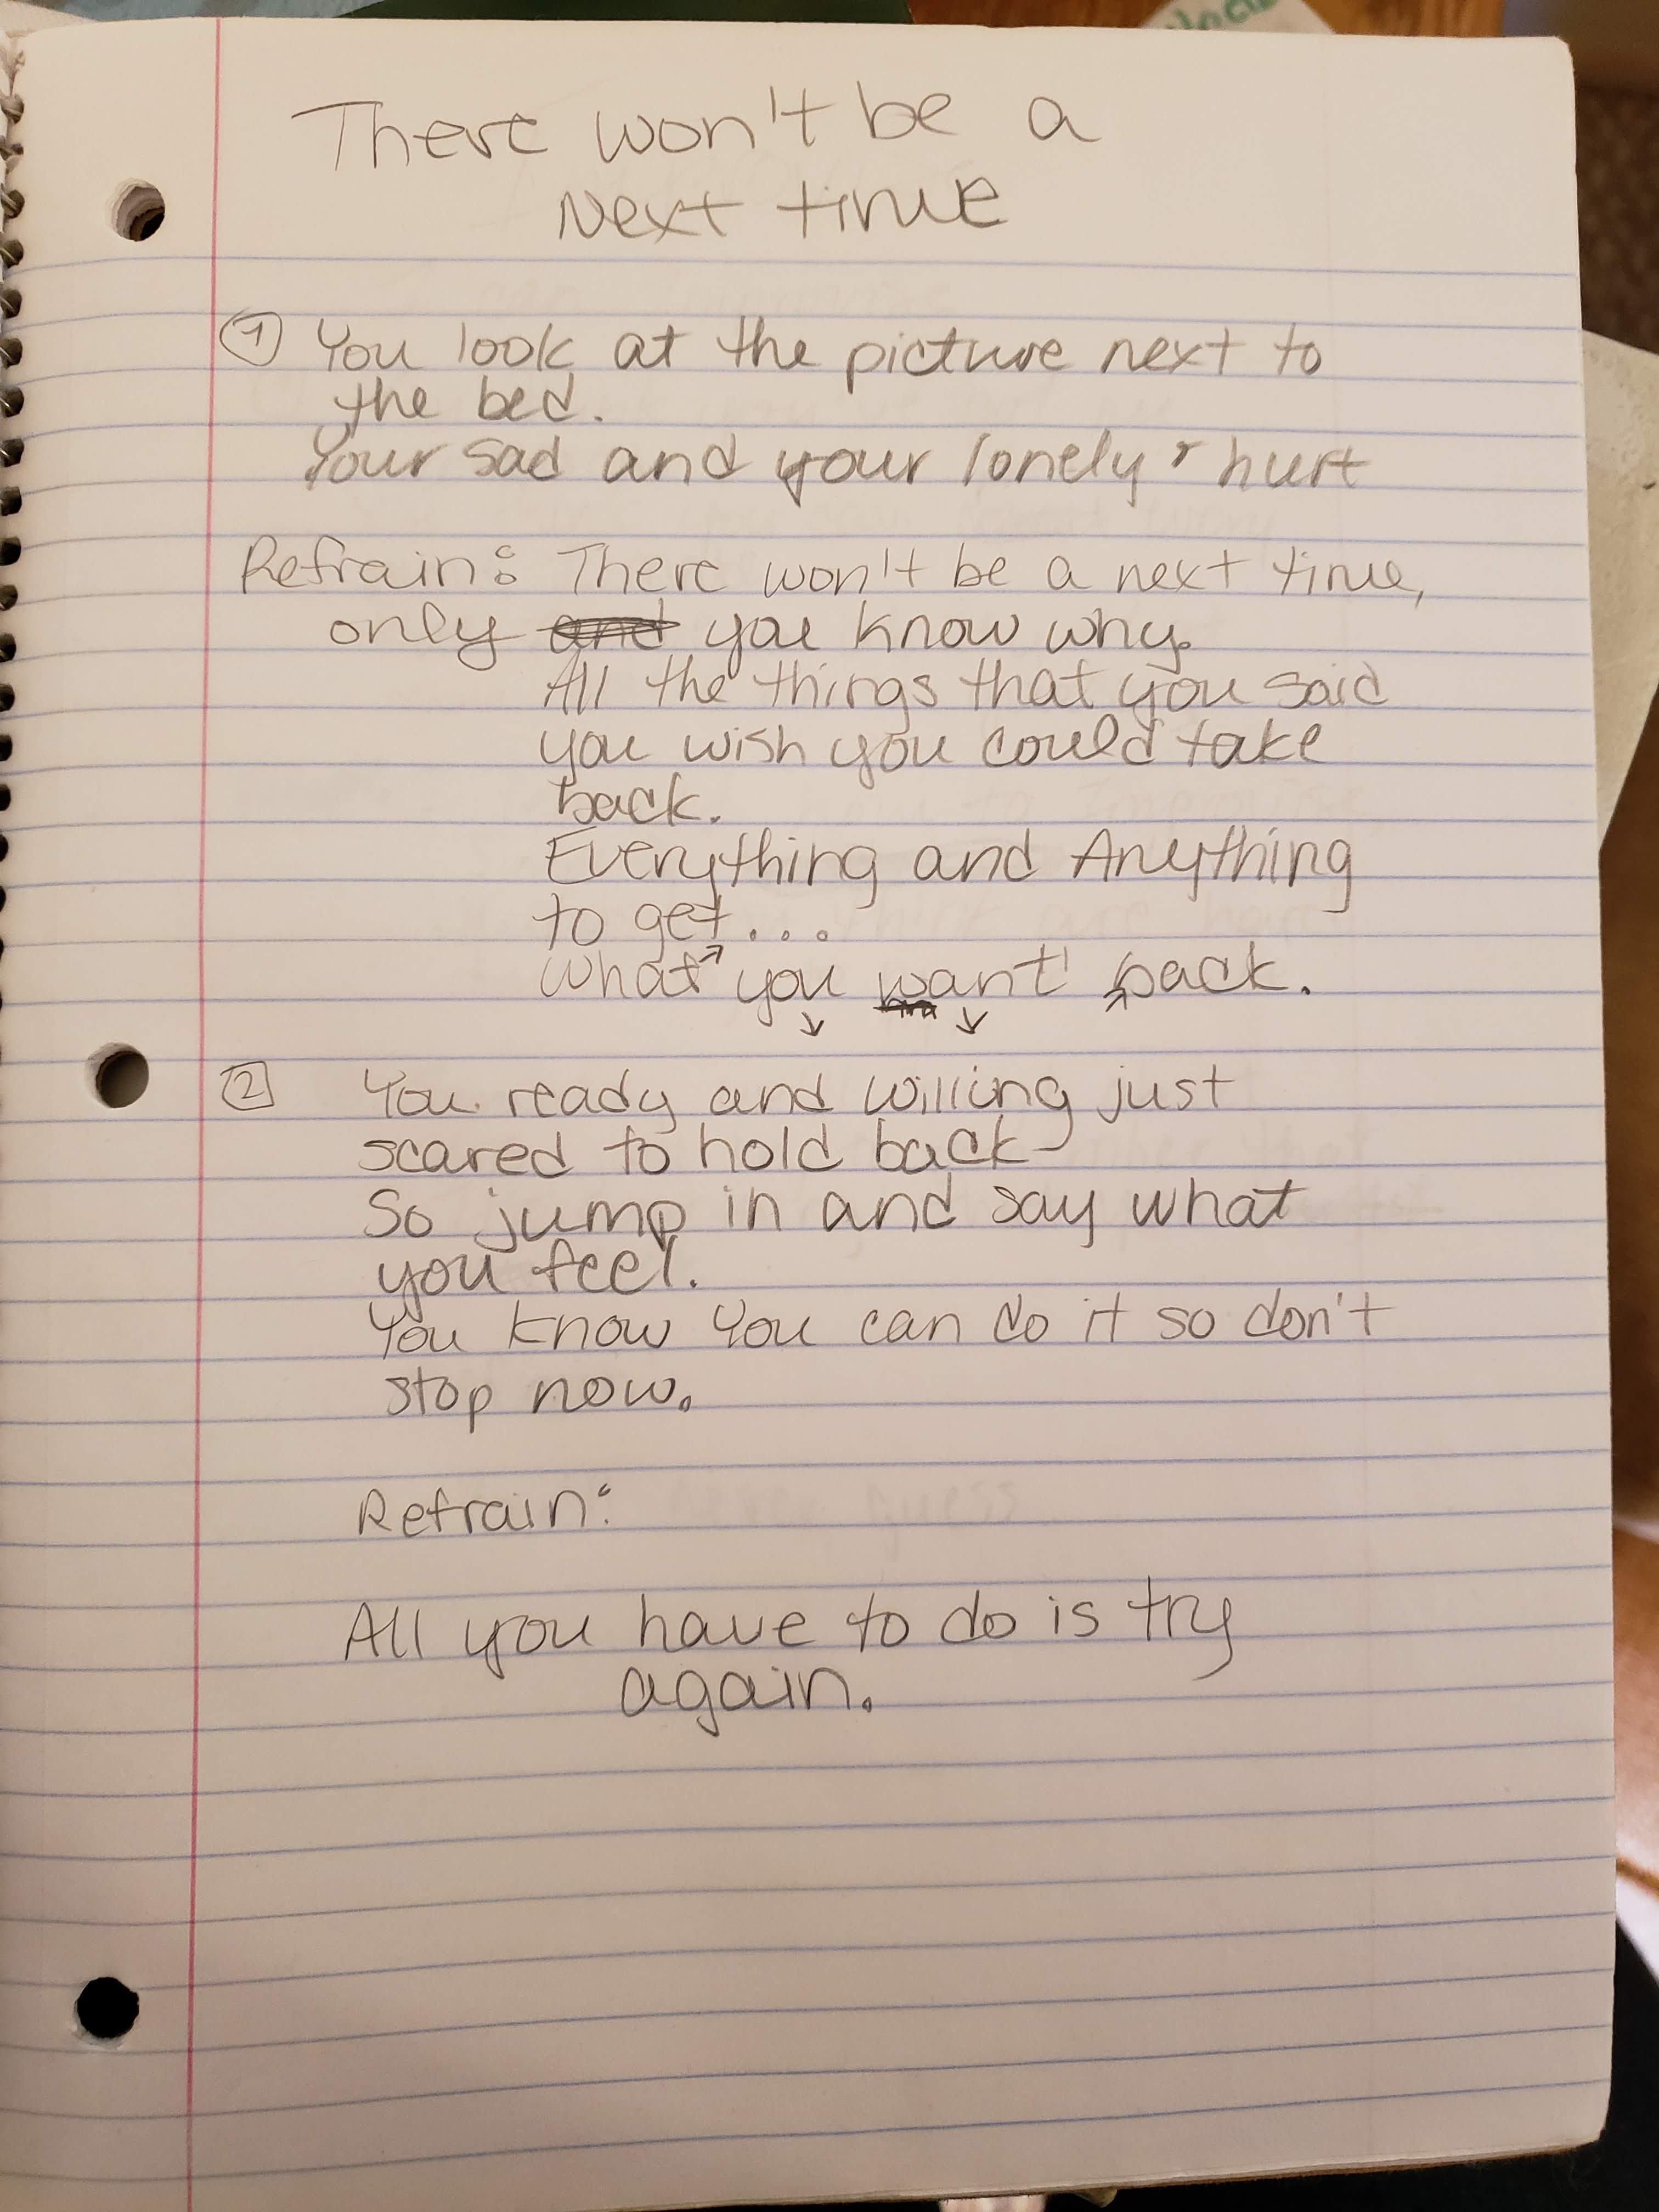 There won't be a
Next time
① You look at the picture next to
the bed.
Your sad and your lonely & hurt
Refrain: There won't be a next time,
only and you know why.
All the things that you said
you wish you could take
back.
Everything and Anything
to get...
what you want back.
2 You ready and willing just
scared to hold back
So jump in and say what
you feel.
You know You can do it so don't
stop now.
Refrain:
All you have to do is try
again.